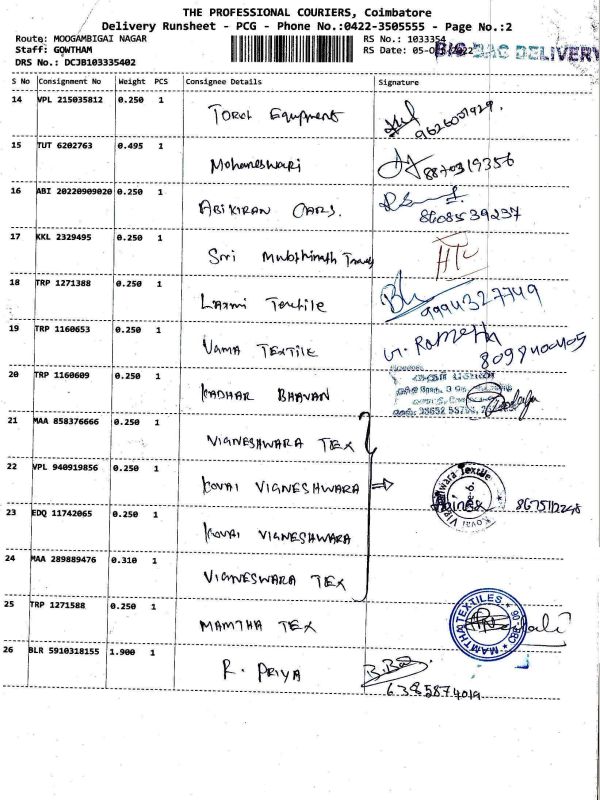 THE PROFESSIONAL COURIERS, Coimbatore
Delivery Runsheet - PCG - Phone No.:0422-3505555 - Page No.:2
Route: MOOGAMBIGAI NAGAR
RS No.: 1033354
Staff: GOWTHAM
RS Date: 05-O /2022
BIG BAG DELIVERY
DRS No.: DCJB103335402
S No Consignment No Weight PCS Consignee Details Signature
14 VPL 215035812 0.250 1 Torch Equipment 9626001929.
15 TUT 6202763 0.495 1 Mohaneswari 8870319356
16 ABI 20220909020 0.250 1 ABIKIRAN CARS. 8608539237
17 KKL 2329495 0.250 1 Sri Travels HTC
18 TRP 1271388 0.250 1 Laxmi Textile 9994327749
19 TRP 1160653 0.250 1 UAMA TEXTILE 8098400405
20 TRP 1160609 0.250 1 KADHAR BHAVAN
21 MAA 858376666 0.250 1 VIGNESHWARA TEX
22 VPL 940919856 0.250 1 KOVAI VIGNESHWARA ⇒ Kovai Vigneshwara Textile 8675112248
23 EDQ 11742065 0.250 1 KOVAI VIGNESHWARA
24 MAA 289889476 0.310 1 VIGNESWARA TEX
25 TRP 1271588 0.250 1 MAMTHA TEX MAMTHA TEXTILES * CBE-
26 BLR 5910318155 1.900 1 R. PRIYA 6385874019